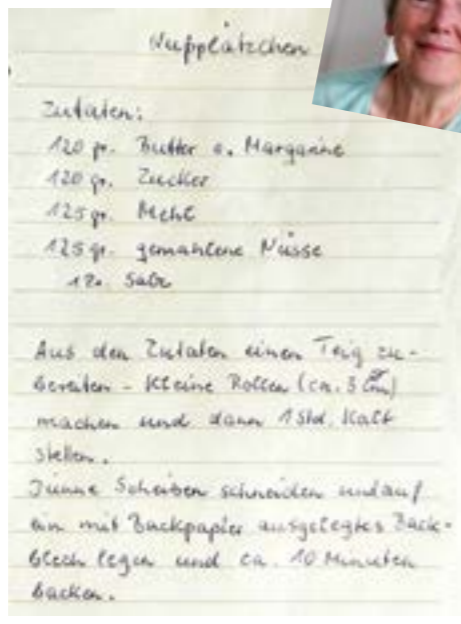 Nußplätzchen
Zutaten:
120 gr. Butter o. Margarine
120 gr. Zucker
125 gr. Mehl
125 gr. gemahlene Nüsse
1 Pr. Salz
Aus den Zutaten einen Teig zu-
bereiten - kleine Rollen (ca. 3 cm)
machen und dann 1 Std. kalt
stellen.
Dünne Scheiben schneiden und auf
ein mit Backpapier ausgelegtes Back-
blech legen und ca. 10 Minuten
backen.